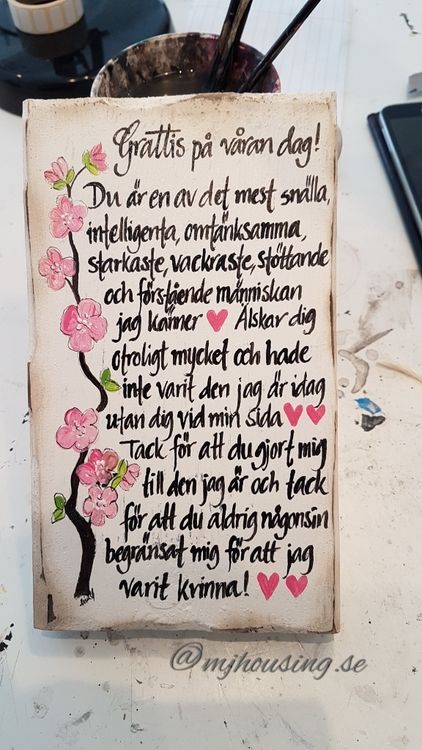 Grattis på våran dag!
Du är en av det mest snälla,
intelligenta, omtänksamma,
starkaste, vackraste, stöttande
och förstående människan
jag känner Älskar dig
otroligt mycket och hade
inte varit den jag är idag
utan dig vid min sida
Tack för att du gjort mig
till den jag är och tack
för att du aldrig någonsin
begränsat mig för att jag
varit krinna!
@mjhousing.se